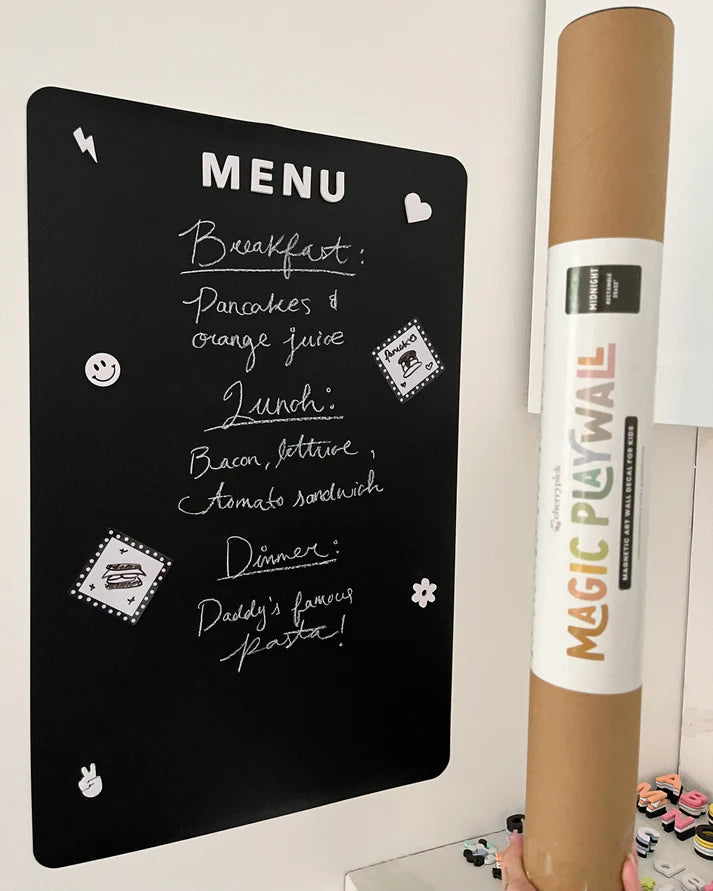 MENU
Breakfast:
Pancakes &
orange juice
Lunch:
Bacon, lettuce,
tomato sandwich
Dinner:
Daddy's famous
pasta!
MIDNIGHT
RECTANGLE
cherrypick
MAGIC PLAYWALL
MAGNETIC ART WALL DECAL FOR KIDS